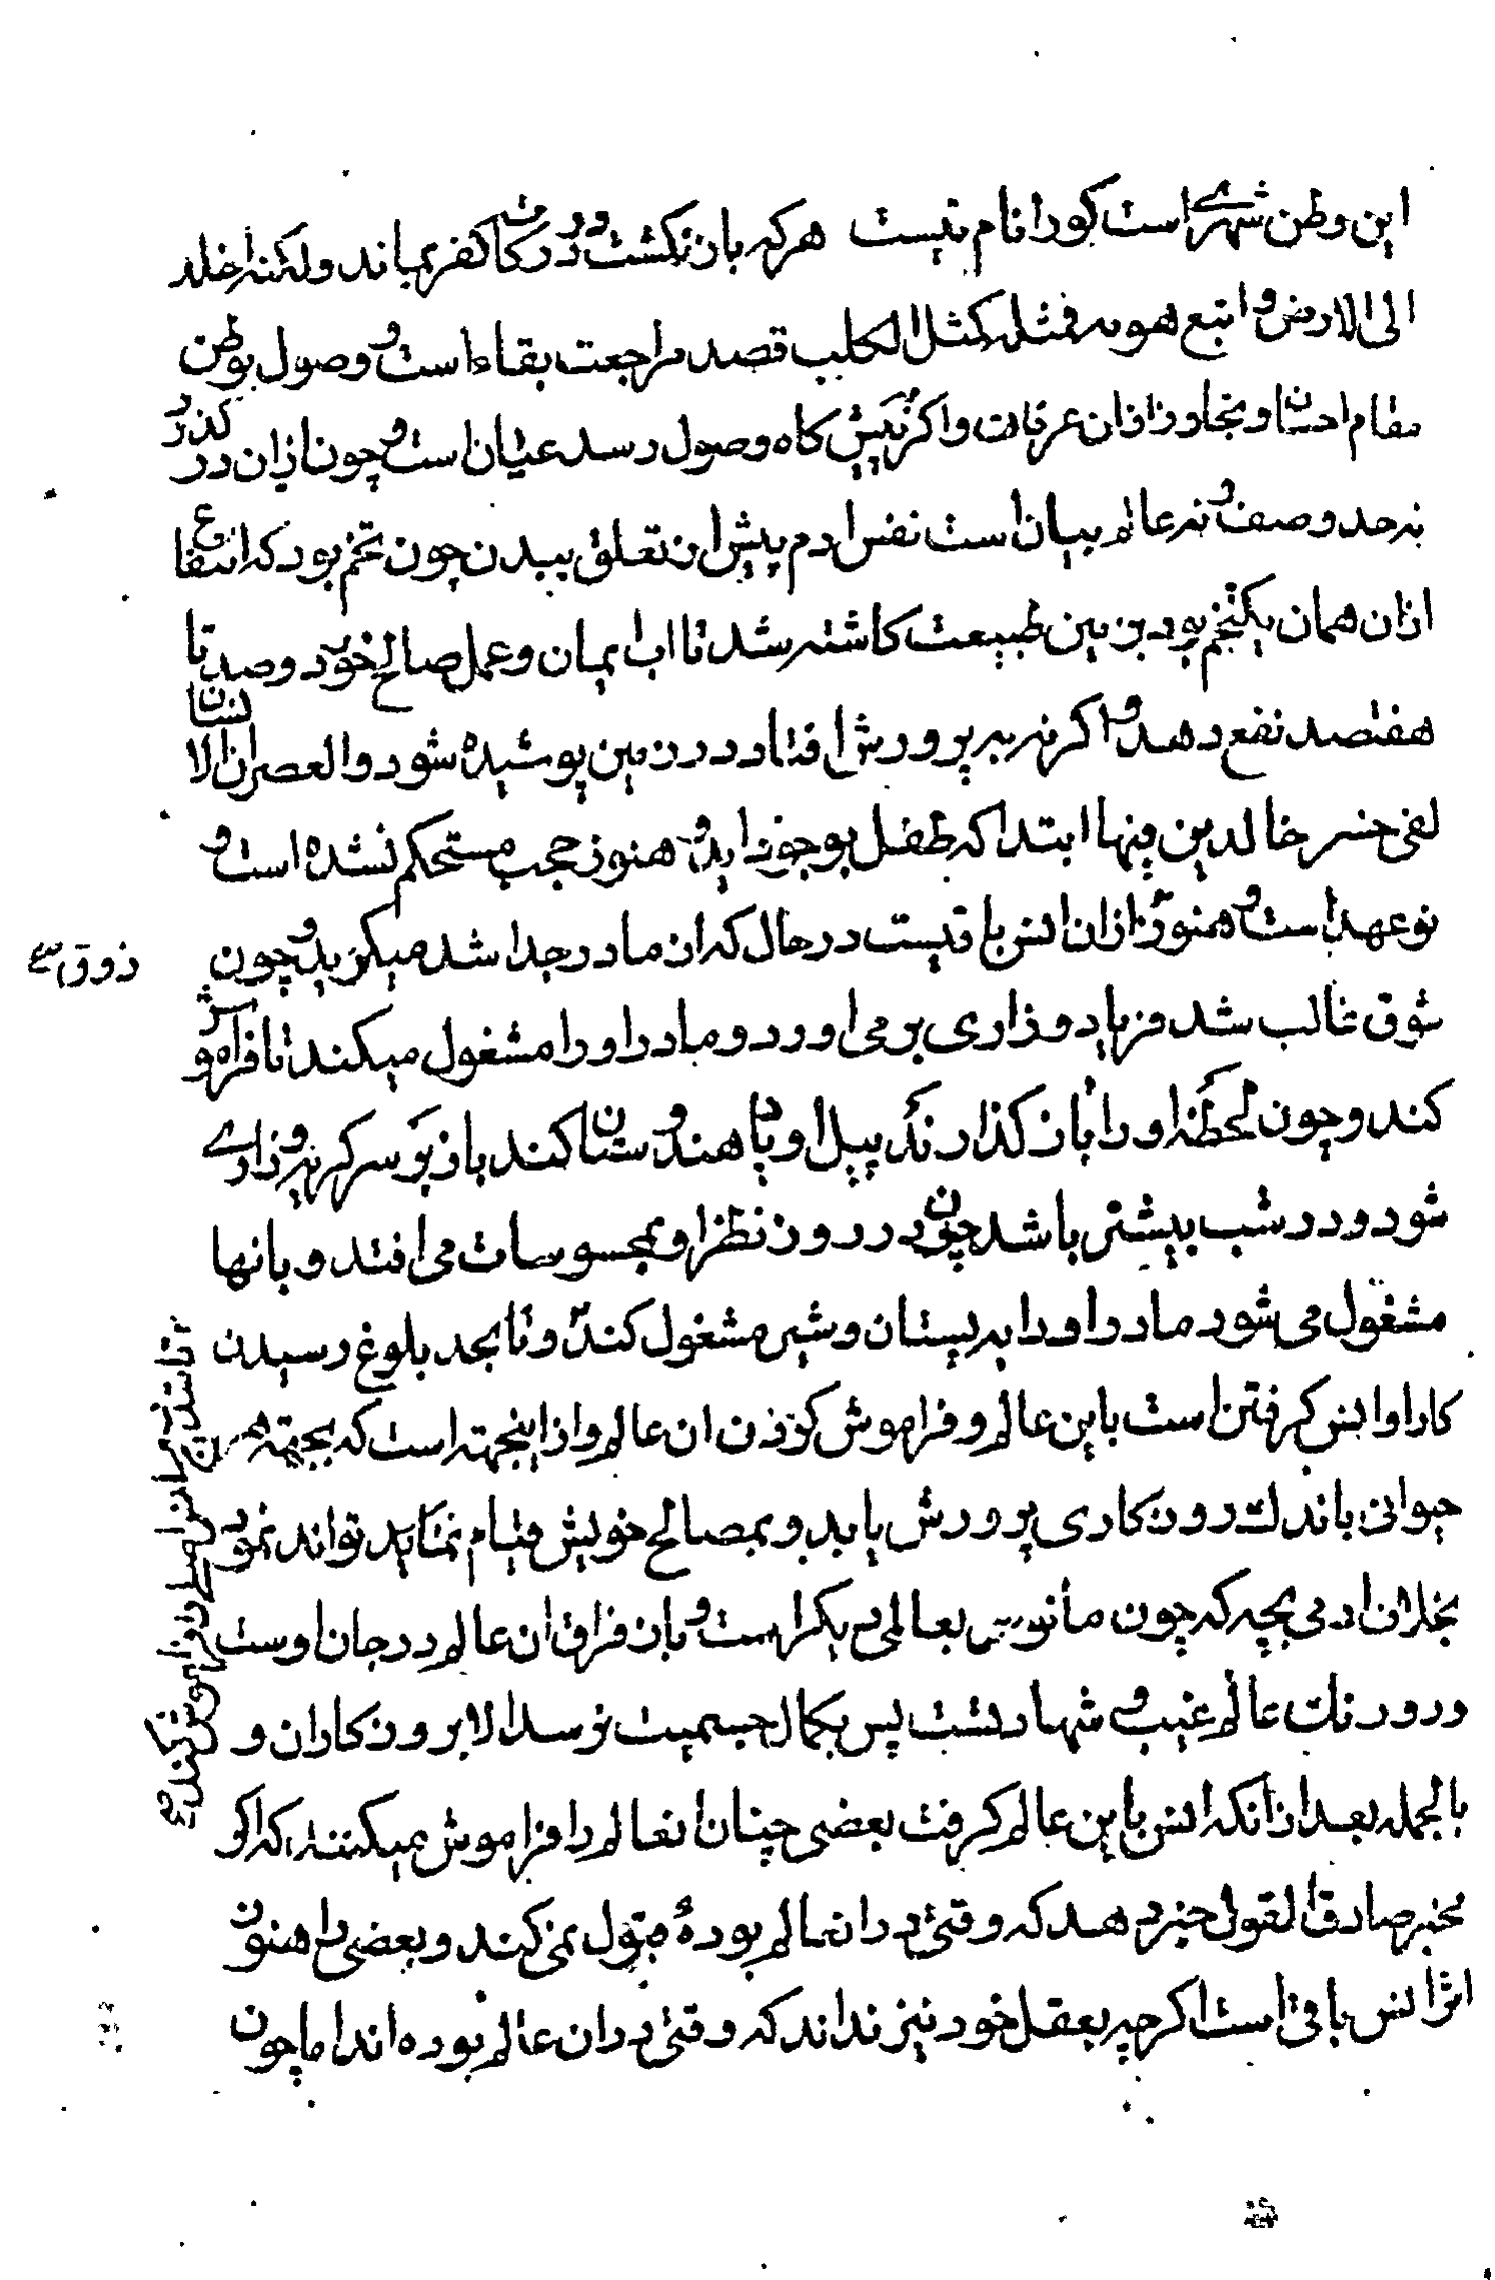 این وطن شهری است کورا نام نیست هرکه بان نکشت در درکات کفر بماند ولکنه اخلد
الی الارض و اتبع هویه فمثله کمثل الکلب قصد مراجعت بقاء است و وصول بوطن
مقام احسان و تجاوز ازان عرفان و اکر پیش کاه وصول رسد عیان است و چون ازان در کذرد
نه حد وصف و نه عالم بیان است نفس ادم پیش ان تعلق ببدن چون تخم بود که انتفاع
ازان همان یکتخم بود بزمین طبیعت کاشته شد تا اب ایمان و عمل صالح خورد و صد تا
هفتصد نفع دهد و اکر نه به پرورش افتاد در زمین پوشیده شود والعصر ان الانسان
لفی خسر خالدین فیها ابتدا که طفل بوجود اید و هنوز حجب مستحکم نشده است و
نو عهد است و هنوز ازان انس باقیست در حال که از مادر جدا شد میکرید و چون
ذوق
شوق غالب شد فریاد و زاری بر می اورد و مادر او را مشغول میکند تا فراموش
کند و چون لحظه او را باز کذارند پیل او یاد هندوستان کند باز بر سر کریه و زاری
شود و در شب بیشتر باشد چون در روز نظر او بمحسوسات می افتد و بانها
مشغول می شود مادر او را به پستان و شیر مشغول کند و تا بحد بلوغ رسیدن
کار او انس کرفتن است باین عالم و فراموش کردن ان عالم و از اینجهته است که بچه هر
حیوانی باندک روزکاری پرورش یابد و بمصالح خویش قیام نماید تواند نمود
بخلاف ادمی بچه که چون مانوس بعالمی دیکر است و بان فراق ان عالم در جان اوست
و دو رنک عالم غیب و شهادتست پس بکمال جسمیت نرسد الا بروزکاران و
تا انس از عالم فراموش کند
بالجمله بعد ازانکه انس باین عالم کرفت بعضی چنان انعالم را فراموش میکنند که اکر
مخبر صادق القول خبر دهد که وقتی در انعالم بوده قبول نمی کند و بعضی را هنوز
اثر انس باقی است اکرچه بعقل خود نیز نداند که وقتی دران عالم بوده اند اما چون